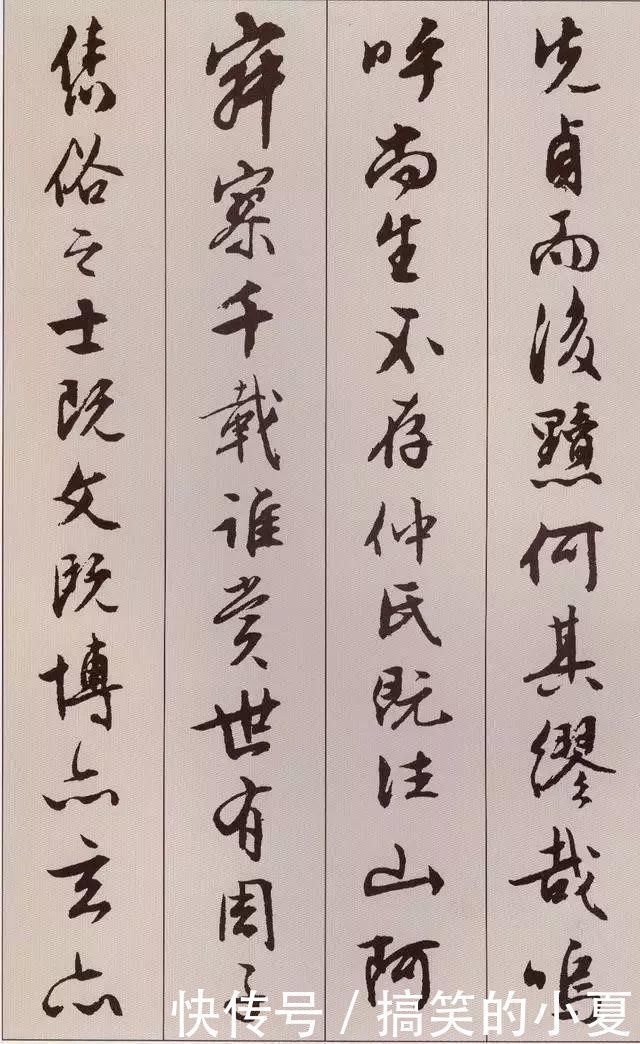 先貞而後黷何其繆哉嗚
呼尚生不存仲氏既往山阿
寂寥千載誰賞世有周子
雋俗之士既文既博亦玄亦
快传号/搞笑的小夏